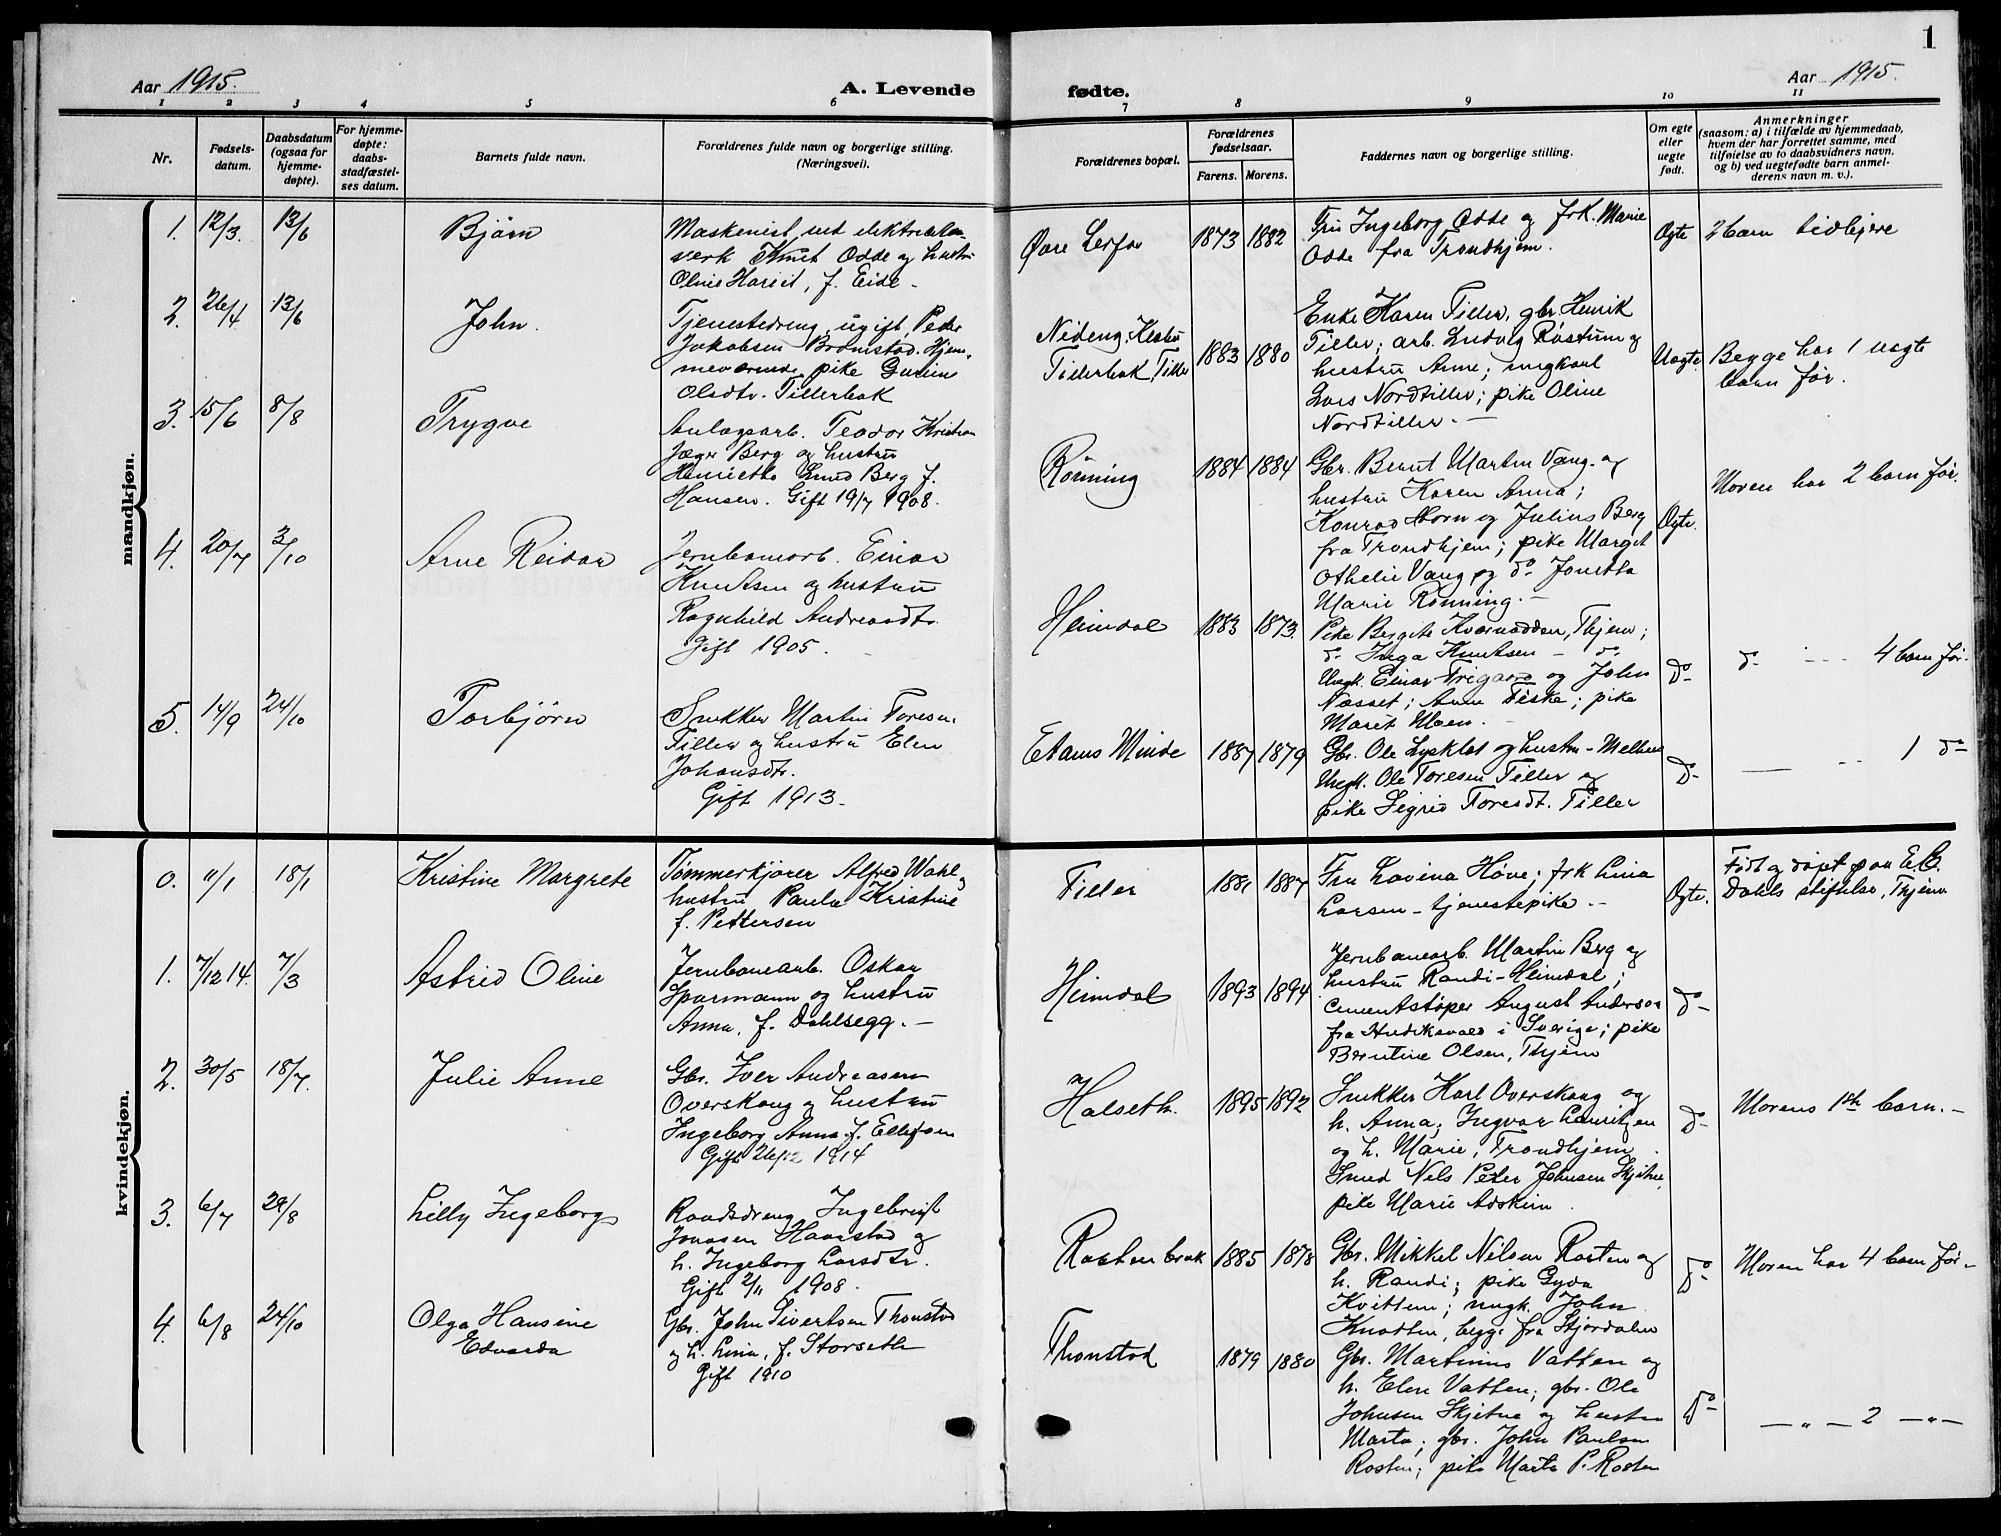 1
Aar 1915.
A. Levende
fødte.
Aar 1915.
1 2 3 4 5 6 7 8 9 10 11
Nr.
Fødsels-
datum.
Daabsdatum
(ogsaa for
hjemme-
døpte).
For hjemme-
døpte:
daabs-
stadfæstel-
ses datum.
Barnets fulde navn.
Forældrenes fulde navn og borgerlige stilling.
(Næringsvei).
Forældrenes bopæl.
Forældrenes
fødselsaar.
Farens. Morens.
Faddernes navn og borgerlige stilling.
Om egte
eller
uegte
født.
Anmerkninger
(saasom: a) i tilfælde av hjemmedaab,
hvem der har forrettet samme, med
tilføielse av to daabsvidners navn,
og b) ved uegtefødte barn anmel-
derens navn m. v.).
mandkjøn.
1. 12/3. 13/6 Bjørn
Maskenist ved elektricitets-
verk Knut Odde og hustru
Oline Harriet, f. Eide.
Øvre Lerfos 1873 1882
Fru Ingeborg Odde og frk. Marie
Odde fra Trondhjem.
Egte 2 barn tidligere
2. 26/4 13/6 John.
Tjenestedreng, ugift Peder
Jakobsen Bromstad. Hjem-
meværende pike Gurine
Olsdtr. Tillerbak
Tillerbak, Tiller 1883 1880
Enke Karen Tiller, gbr. Henrik
Tiller; arb. Ludvig Røstum og
hustru Anne; ungkarl
Lars Nordtiller; pike Oline
Nordtiller. —
Uegte. Begge har 1 uegte
barn før.
3. 15/6 8/8 Trygve
Anlægsarb. Teodor Kristian
Jæger Berg og hustru
Henriette Lund Berg f.
Hansen. Gift 19/7 1908.
Rønning 1884 1884
Gbr. Bernt Martin Vang og
hustru Karen Anna;
Konrad Horn og Julius Berg
fra Trondhjem; pike Marget
Othelie Vang og do Jonetta
Marie Rønning. —
Egte. Moren har 2 barn før.
4. 20/7 3/10 Arne Reidar
Jernbanearb. Einar
Knutsen og hustru
Ragnhild Andreasdtr.
Gift 1905.
Heimdal 1883 1873.
Pike Bergite Kvernodden, Thjem;
do Inga Knutsen — do
Ungk. Einar Trigaro og John
Næsset; Anne Fiske; pike
Marit Moen.
do do 4 barn før.
5. 14/9 24/10 Torbjørn
Snekker Martin Toresen
Tiller og hustru Elen
Johansdtr.
Gift 1913.
Etams Minde 1887 1879
Gbr. Ole Lysklet og hustru — Melhus
Ungk. Ole Toresen Tiller og
pike Sigrid Toresdt. Tiller
do 1 do
kvindekjøn.
0. 11/1 18/1 Kristine Margrete
Tømmerkjører Alfred Wahl og
hustru Paula Kristine
f. Pettersen
Tiller 1881 1887
Fru Lovina Høve; frk Lina
Larsen — tjenestepike. —
Egte. Født og døpt paa E.C.
Dahls stiftelse, Thjem
1. 7/12 14. 7/3 Astrid Oline
Jernbanearb. Oskar
Sparmann og hustru
Anna, f. Dahlsegg. —
Heimdal 1893 1894
Jernbanearb. Martin Berg og
hustru Randi — Heimdal;
Cementstøper August Anderson
fra Hudiksvald i Sverige; pike
Berntine Olsen, Thjem
do
2. 30/5 18/7. Julie Anne
Gbr. Iver Andreasen
Overskaug og hustru
Ingeborg Anna f. Ellefsen
Gift 26/12 1914
Halseth. 1895 1892
Snekker Karl Overskaug og
h. Anna; Ingvar Lauritzen
og h. Marie, Trondhjem.
Smed Nils Peter Johnsen Skjetne,
pike Marie Adskim.
do Morens 1ste barn. —
3. 6/7 29/8 Lilly Ingeborg
Raadsdreng Ingebrigt
Jonasen Haarstad og
h. Ingeborg Larsdtr.
Gift 2/11 1908.
Rostenbrak 1885 1878
Gbr. Mikkel Nilsen Rosten og
h. Randi; pike Gyda
Kvittem; ungk. John
Knodten, begge fra Stjørdalen
do Moren har 4 barn før —
4. 6/8 24/10 Olga Hansine
Edvarda
Gbr. John Sivertsen Thonstad
og h. Lina, f. Storseth
Gift 1910
Thonstad 1879 1880
Gbr. Martinus Vatten og
h. Elen Vatten; gbr. Ole
Johnsen Skjetne og hustru
Marta; gbr. John Paulsen
Rosten; pike Marta P. Rosten
do — " — 2 — " —